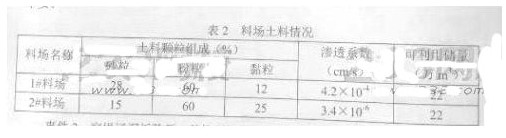 表2 料场土料情况
料场名称 土料颗粒组成(%) 渗透系数 可利用储量
砂粒 粉粒 黏粒 (cm/s) (万m³)
1#料场 28 60 12 4.2×10⁻⁴ 22
2#料场 15 60 25 3.4×10⁻⁶ 22